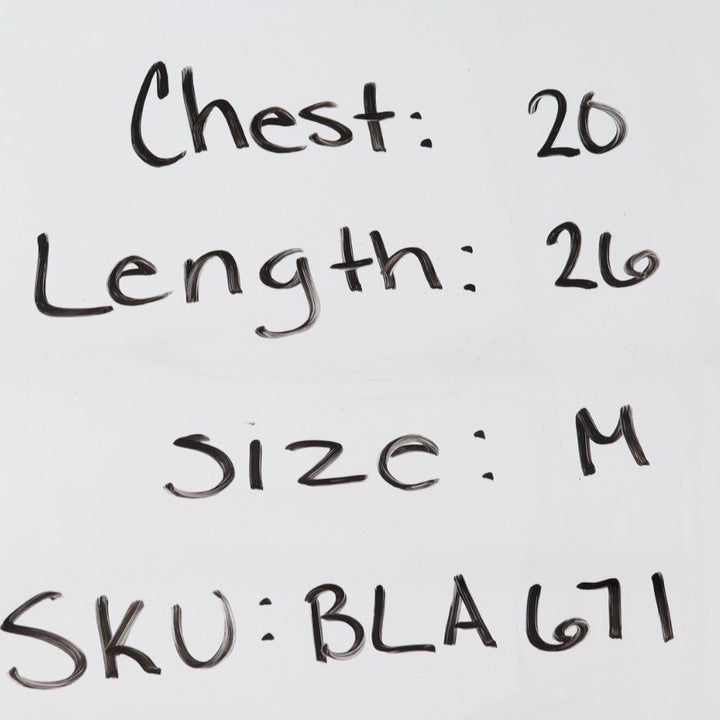 Chest: 20
Length: 26
Size: M
SKU: BLA671